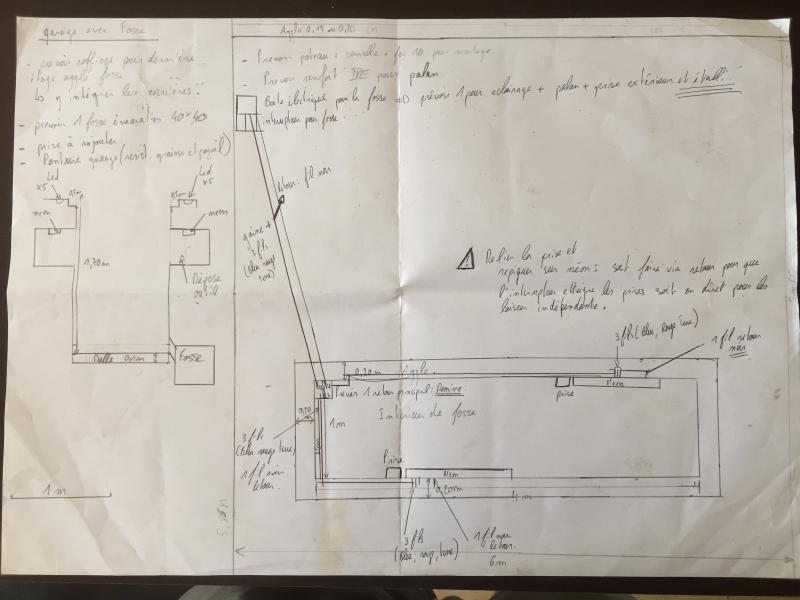 garage avec Fosse
- prévoir coffrage pour dernière
étage agglo fosse
↳ y intégrer les cornières.
- prévoir 1 fosse évacuation 40x40
- prise à rajouter
- Peinture garage (resist. graisse et gasoil)
Led
x5
Led
x5
neon
neon
1,70m
Dépose
outil
Dalle
Fosse
1 m
Agglo 0,15 ou 0,20 cm
- Prévoir poteau + semelle + fer 10 pour montage
- Prévoir renfort IPE pour palan.
- Boite électrique pour la fosse => prévoir 1 pour eclairage + palan + prise extérieur et établi
interrupteur pour fosse.
retour : fil noir
gaine +
3 fils
(bleu rouge
terre)
⚠ Relier la prise et
repiquer sur néon : soit faire via retour pour que
l'interrupteur et les prises soit en direct pour les
laisser indépendante.
3 fils (bleu, rouge, terre)
1 fil retour
noir
0,20m Agglo
Prévoir 1 retour principal : Domino
prise
Neon
Intérieur de fosse
0,20
m
1m
Neon
3 fils
(bleu rouge terre)
1 fil noir
retour.
Prise
Neon
0,20m
4 m
3 fils
(bleu, rouge, terre)
1 fil noir
retour
6m